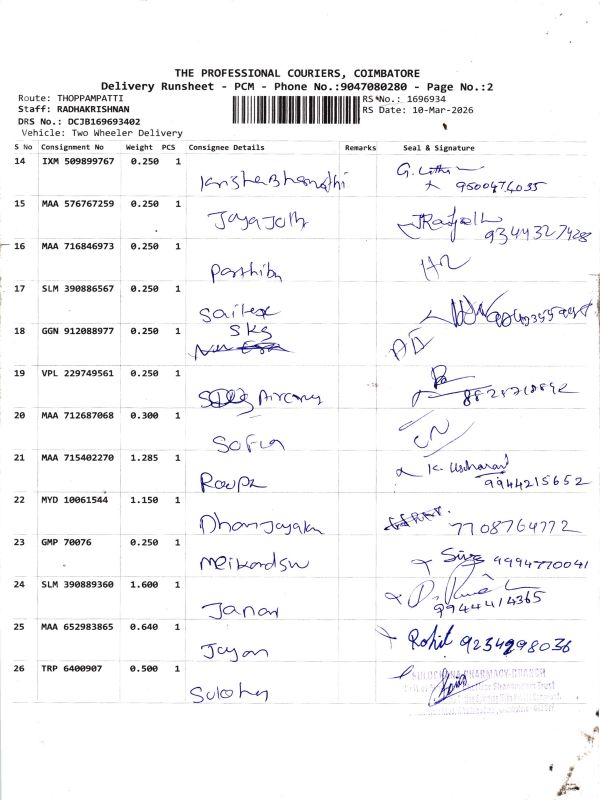 THE PROFESSIONAL COURIERS, COIMBATORE
Delivery Runsheet - PCM - Phone No.:9047080280 - Page No.:2
Route: THOPPAMPATTI
RS No.: 1696934
Staff: RADHAKRISHNAN
RS Date: 10-Mar-2026
DRS No.: DCJB169693402
Vehicle: Two Wheeler Delivery
S No Consignment No Weight PCS Consignee Details Remarks Seal & Signature
14 IXM 509899767 0.250 1
9500474035
15 MAA 576767259 0.250 1
Jaya Joth
9344327428
16 MAA 716846973 0.250 1
Parthibn
17 SLM 390886567 0.250 1
Sailex
18 GGN 912088977 0.250 1
SKS
19 VPL 229749561 0.250 1
20 MAA 712687068 0.300 1
Sofia
21 MAA 715402270 1.285 1
Roupa 9944215652
22 MYD 10061544 1.150 1
Dhanjayan 7708764772
23 GMP 70076 0.250 1
Siva 9994770041
24 SLM 390889360 1.600 1
Janar 9944414365
25 MAA 652983865 0.640 1
Jayan Rohit 9234298036
26 TRP 6400907 0.500 1
SULOCHANA PHARMACY-BRANCH